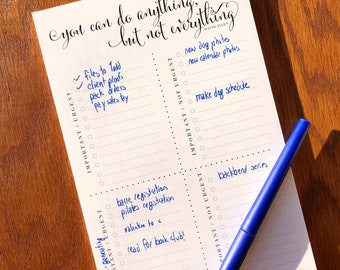 you can do anything,
but not everything
IMPORTANT / URGENT
✓ files to Todd
✓ client proofs
pack orders
pay sales by
NOT URGENT
new dog photos
new calendar photos
make dog schedule
IMPORTANT / URGENT
barre registration
pilates registration
read for book club!
NOT IMPORTANT / NOT URGENT
backbend series